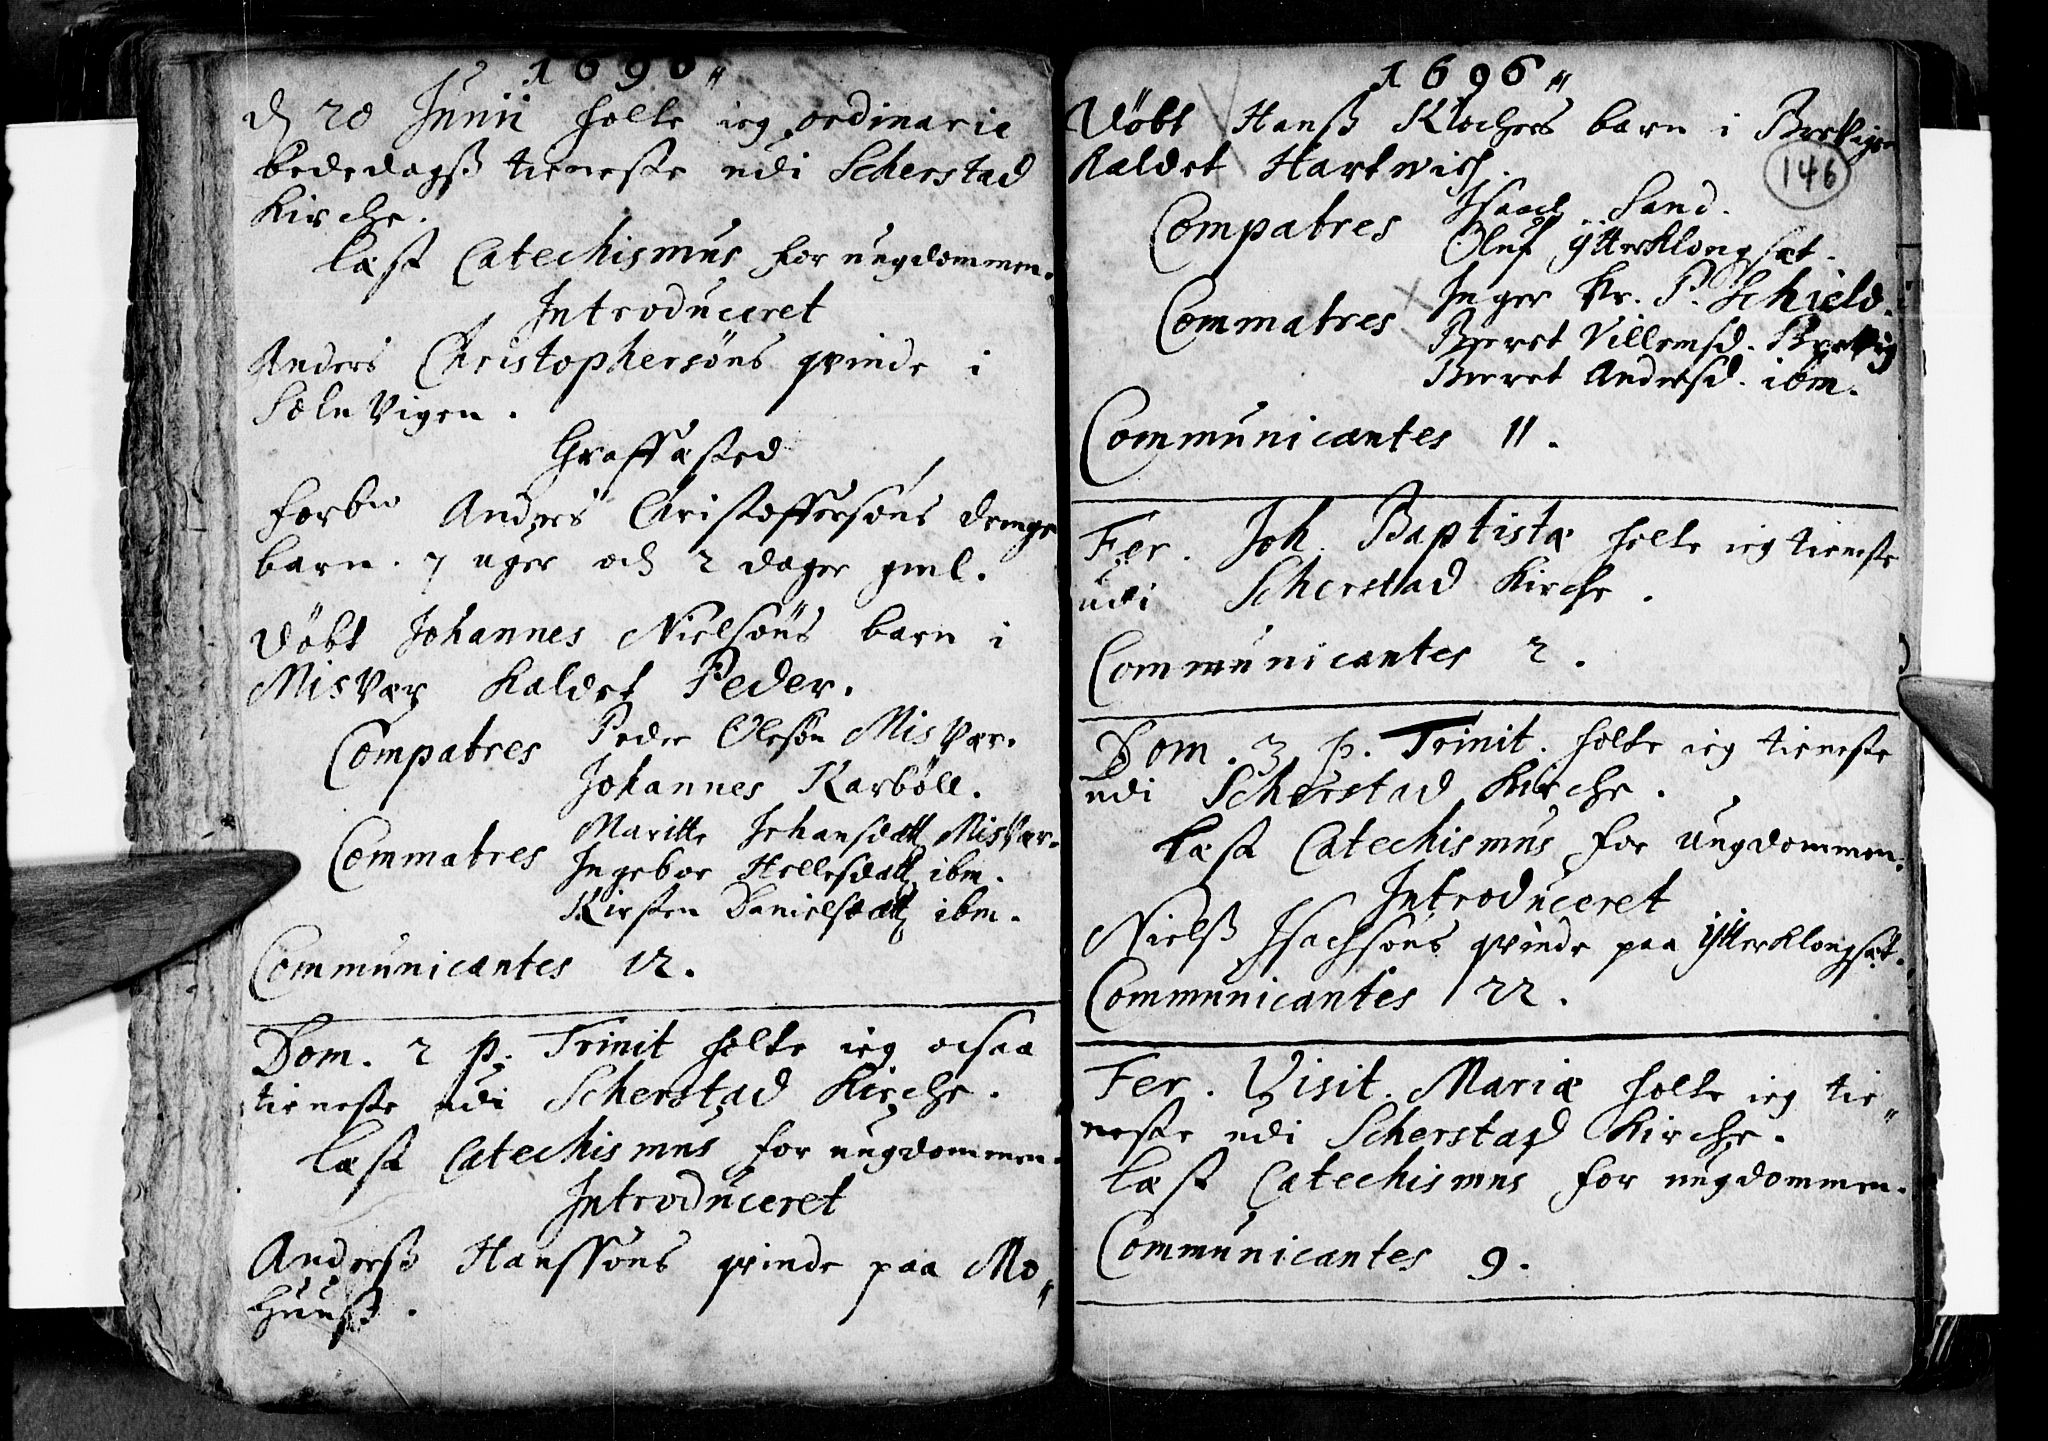 1696
d 20 Junii holte ieg ordinarie
bededagß tieneste udi Scherstad
Kirche.
læst Catechismus for ungdommen.
Introduceret
Anders Christophersöns qvinde i
Solu Vigen.
Graffæsted
forbte Anders Christoffersöns drenge
barn. 7 uger och 2 dager gml.
Döbt Johannes Nielsöns barn i
Misvær kaldet Peder.
Compatres Peder Olesön Misvær.
Johannes Karböll.
Commatres Maritte Johansdatt Misvær.
Ingebor Hellesdatt ibm.
Kirsten Danielsdatt ibm.
Communicantes 12.
Dom. 2 p. Trinit holte ieg ocsaa
tieneste udi Scherstad Kirche.
læst Catechismus for ungdommen.
Introduceret
Anderß Hanssöns qvinde paa Mo„
huuß.
1696
Döbt Hanß Klochers barn i Brevigen
kaldet Hartwich.
146
Compatres Isaach Sand.
Oluf Ytterklongset.
Commatres Inger Sr. P. Schield.
Beret Villemsd. Brevig
Beret Andersd. ibm.
Communicantes 11.
Fer. Joh. Baptistæ holte ieg tieneste
udi Scherstad Kirche.
Communicantes 2.
Dom. 3 p. Trinit. holte ieg tieneste
udi Scherstad Kirche.
læst Catechismus for Ungdommen.
Introduceret
Nielß Isachsöns qvinde paa Ytterklongset.
Communicantes 22.
Fer. Visit. Mariæ holte ieg tie„
neste udi Scherstad Kirche.
læst Catechismus for ungdommen.
Communicantes 9.